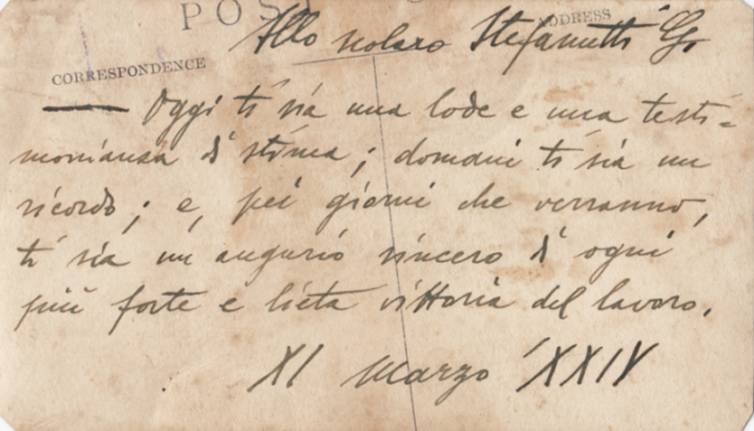 POS
ADDRESS
Allo scolaro Stefanutti G.
CORRESPONDENCE
Oggi ti sia una lode e una testi=
monianza di stima; domani ti sia un
ricordo; e, pei giorni che verranno,
ti sia un augurio sincero di ogni
più forte e lieta vittoria del lavoro.
XI Marzo 'XXIV